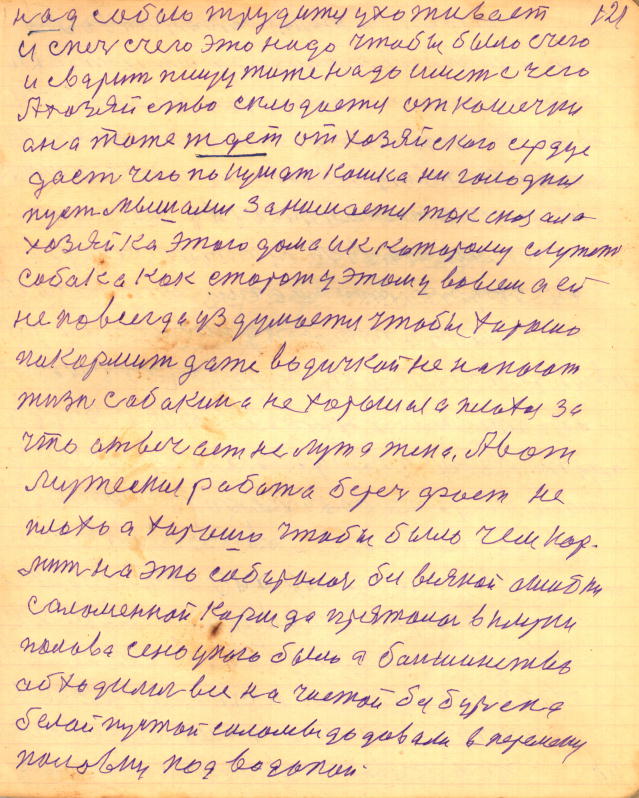 над собою трудится ухоживает 121
и спеч счего это надо чтобы было счего
и сварит пищу тоже надо имет с чего
А хозяйство сплодается от кошечки
она тоже ждет от хозяйского сердце
даст чего покушат кошка ни голодная
пуст мышами занимается так сказала
хозяйка этого дома и к которому служит
собака как сторож у этому во всем а ей
не повсегда уздумается чтобы хорошо
покормит даже водичкой не напоят
жизн собакина не хорошая а плохая за
что отвечает не мужа жена. А вот
мужеская работа береч скот не
плохо а хорошо чтобы было чем кор-
мит на это собиралос бы всякой
соломенной корм да прятолос в
полова сено у кого было а башинство
обходилис все на чистой бы
белой пустой соломы додовали в перемену
половы под водопой.